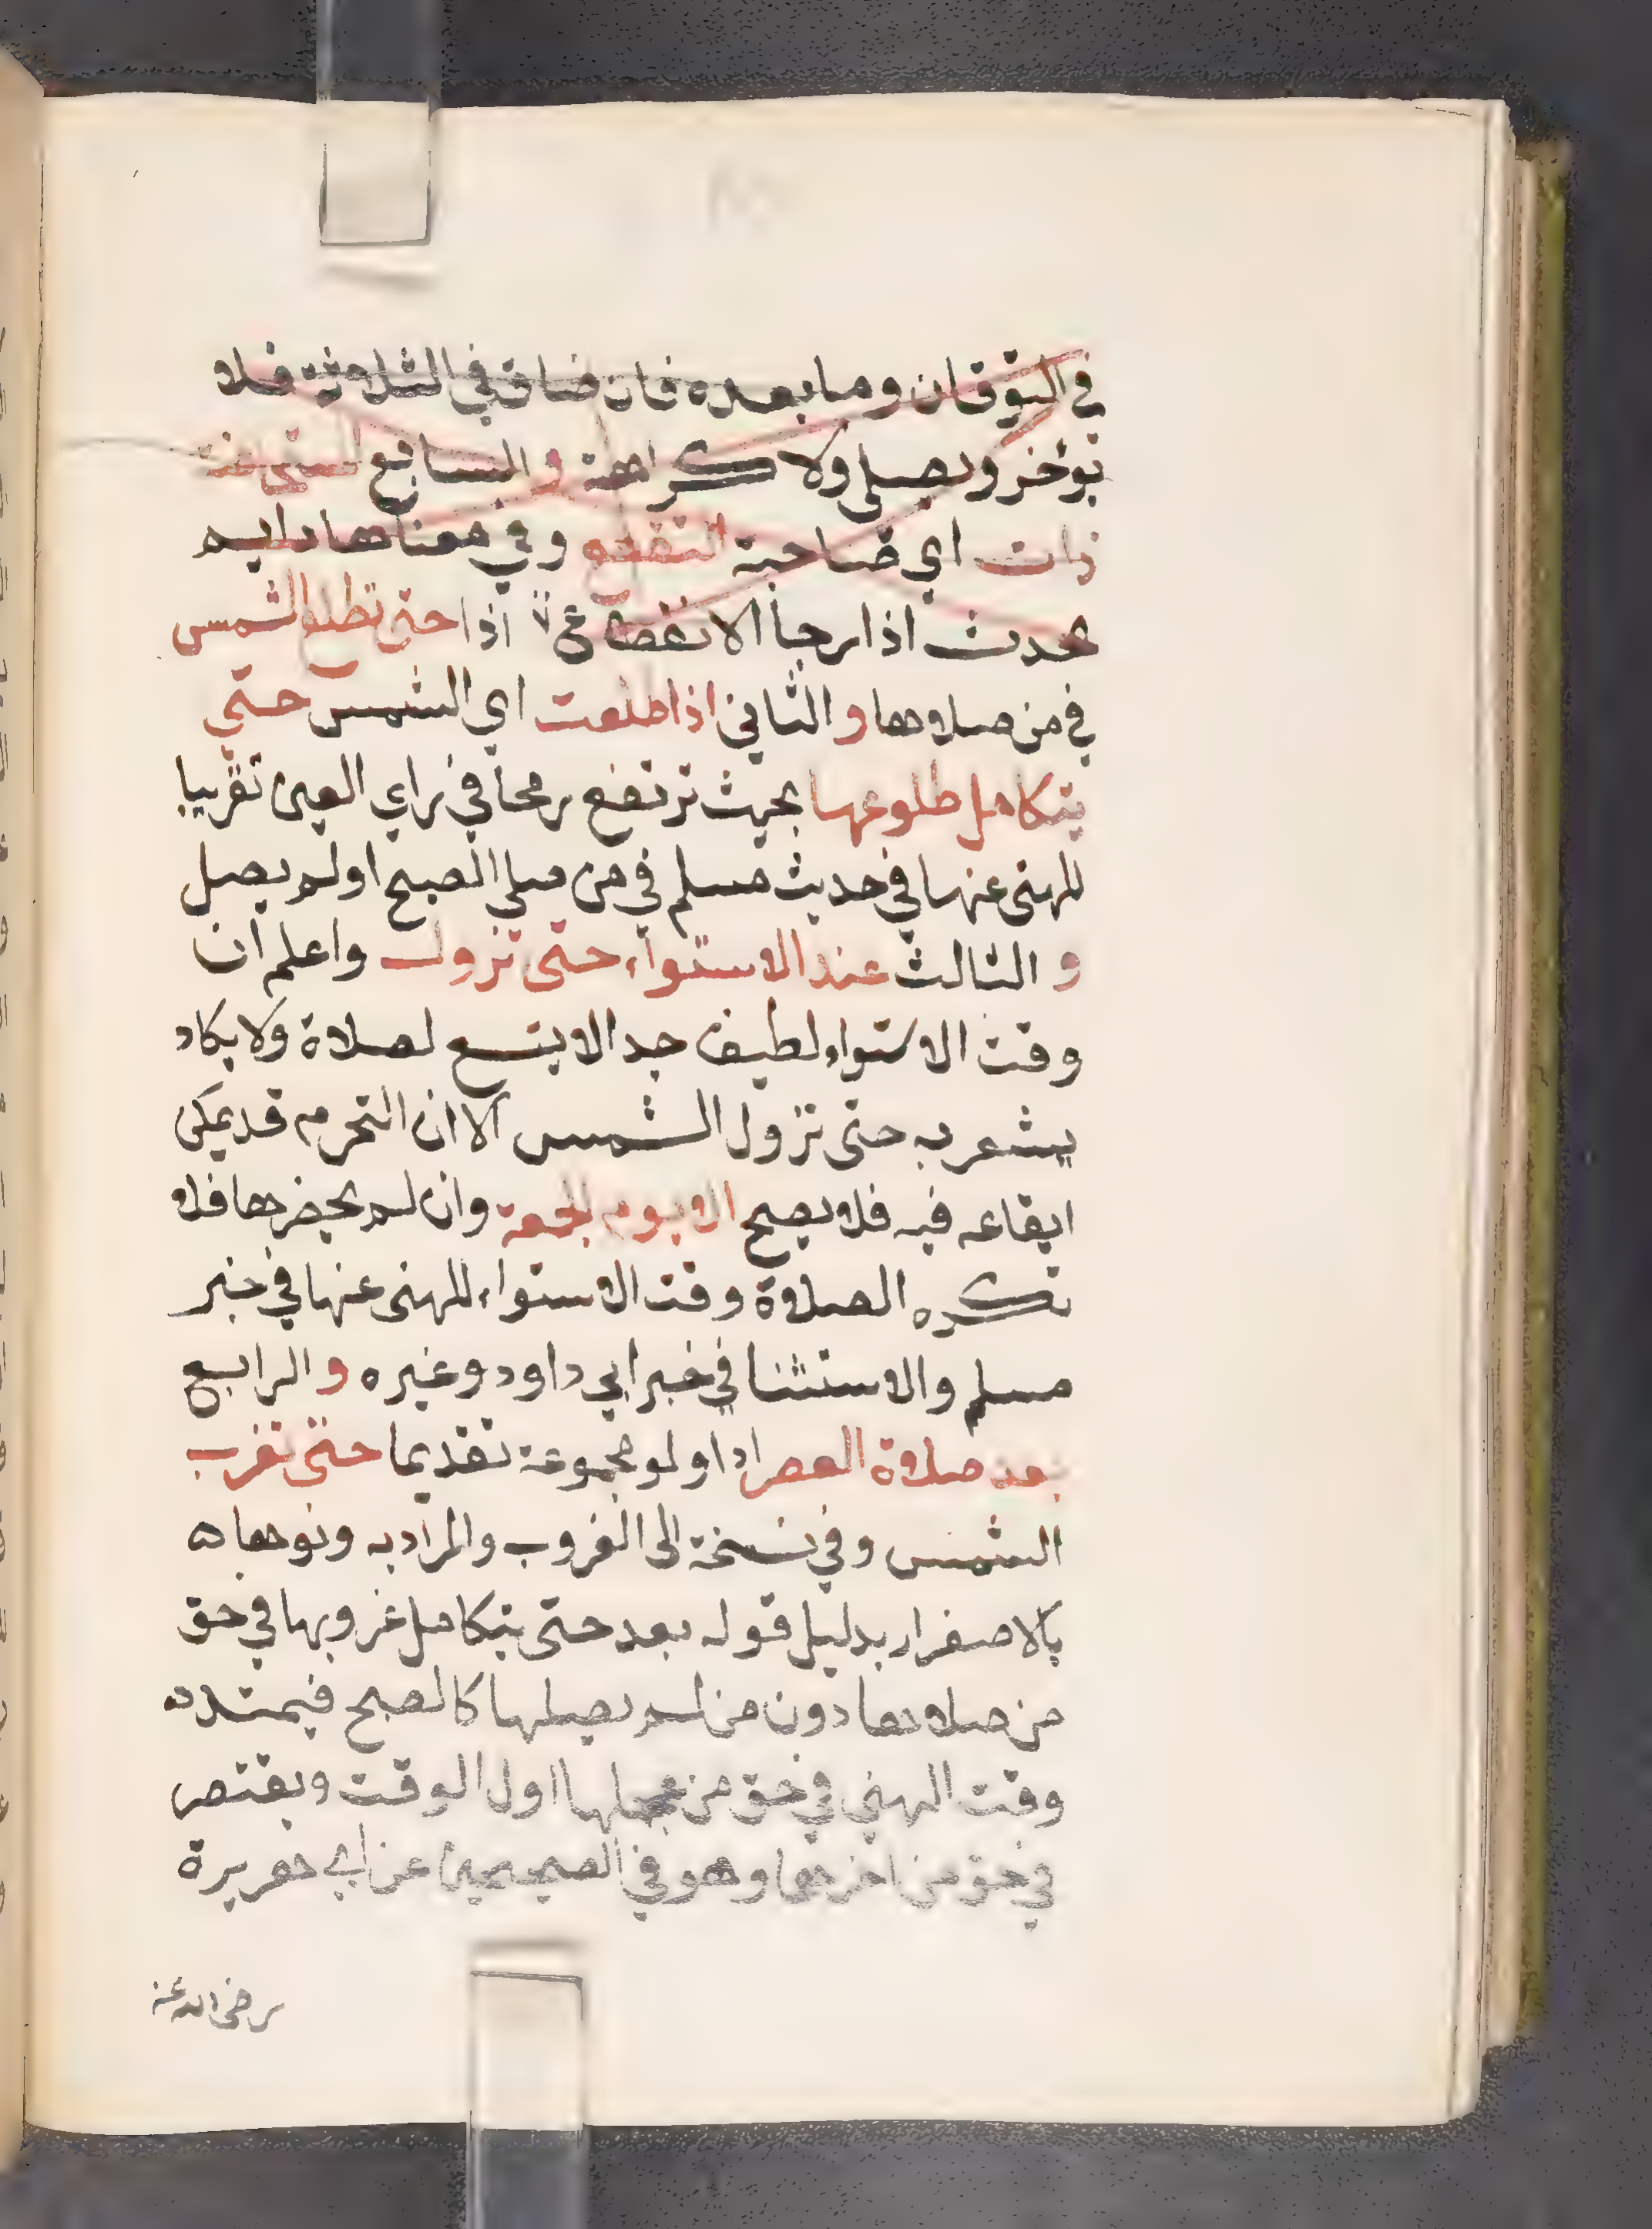 في التوقان وما بعده فان ضاق في الثلاثة فلا
توخر ويصلي ولا كراهة و السابع المستحاضة
ذات اي صاحبة التقطع وفي معناها دايم
حدث اذا رجا الانقطاع اذا حتى تطلع الشمس
في من صلاها و الثاني اذا طلعت اي الشمس حتي
يتكامل طلوعها بحيث ترتفع رمحا في راي العين تقريبا
للنهى عنها في حديث مسلم في من صلي الصبح اولم يصل
و الثالث عند الاستواء حتى تزول واعلم ان
وقت الاستواء لطيف جدا لا يتسع لصلاة ولا يكاد
يشعر به حتى تزول الشمس الا ان التحرم قد يمكن
ايقاعه فيه فلا يصح الا يوم الجمعة وان لم يحضرها فلا
تكره الصلاة وقت الاستواء للنهى عنها في خبر
مسلم والاستثنا في خبر ابي داود وغيره و الرابع
بعد صلاة العصر ادا ولو مجموعة تقديما حتى تغرب
الشمس وفي نسخة الى الغروب والمراد به ونوحها
بالاصفرار بدليل قوله بعد حتى يتكامل غروبها في حق
من صلاها دون من لم يصلها كالصبح فيمتد
وقت النهي في حق من عجلها اول الوقت ويقتصر
في حق من اخرها وهو في الصحيحين عن ابي هريرة
رضى الله عنه